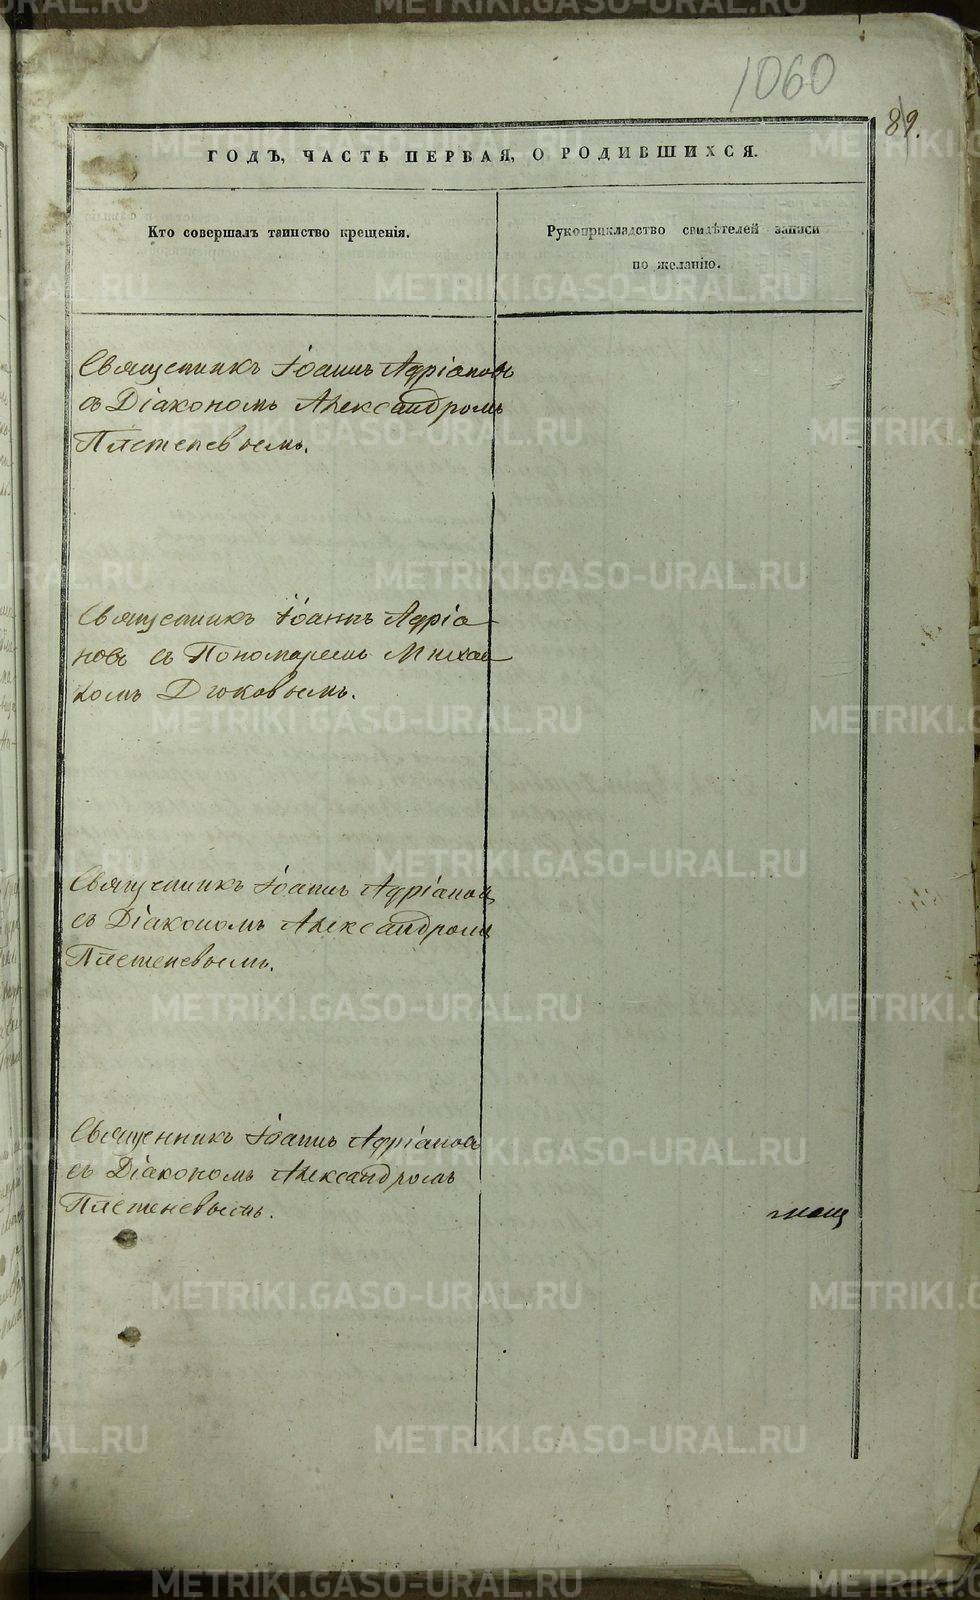 1060
89.
ГОДЪ, ЧАСТЬ ПЕРВАЯ, О РОДИВШИХСЯ.
Кто совершалъ таинство крещенія.
Рукоприкладство свидѣтелей записи
по желанію.
Священникъ Іоаннъ Адріановъ
съ Діакономъ Александромъ
Плетеневымъ.
Священникъ Іоаннъ Адріа-
новъ съ Пономаремъ Михаи-
ломъ Дюковымъ.
Священникъ Іоаннъ Адріановъ
съ Діакономъ Александромъ
Плетеневымъ.
Священникъ Іоаннъ Адріановъ
съ Діакономъ Александромъ
Плетеневымъ.
METRIKI.GASO-URAL.RU